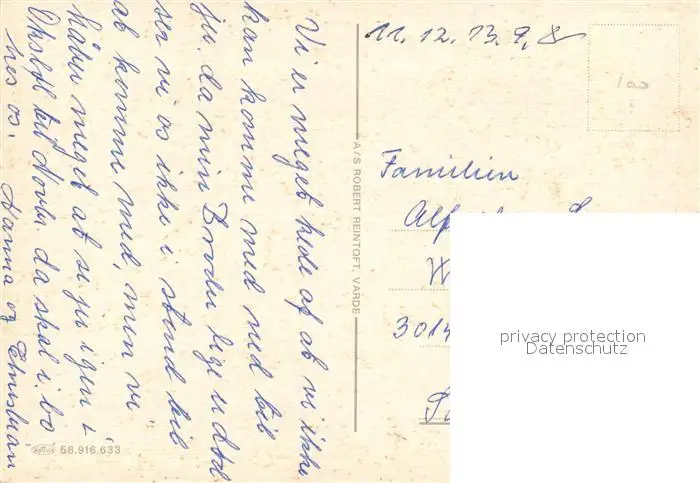 Vi er meget kede af at vi ikke
kan komme med ned til
jer. da min Broder lige er død
ser vi os ikke i stand til
at komme med, men vi
håber meget at se jer igen i
til da skal i bo
hos os. Hanna og
11. 12. 13. 9, 8
Familien
3014
A/S ROBERT REINTOFT, VARDE
58.916.633
privacy protection
Datenschutz